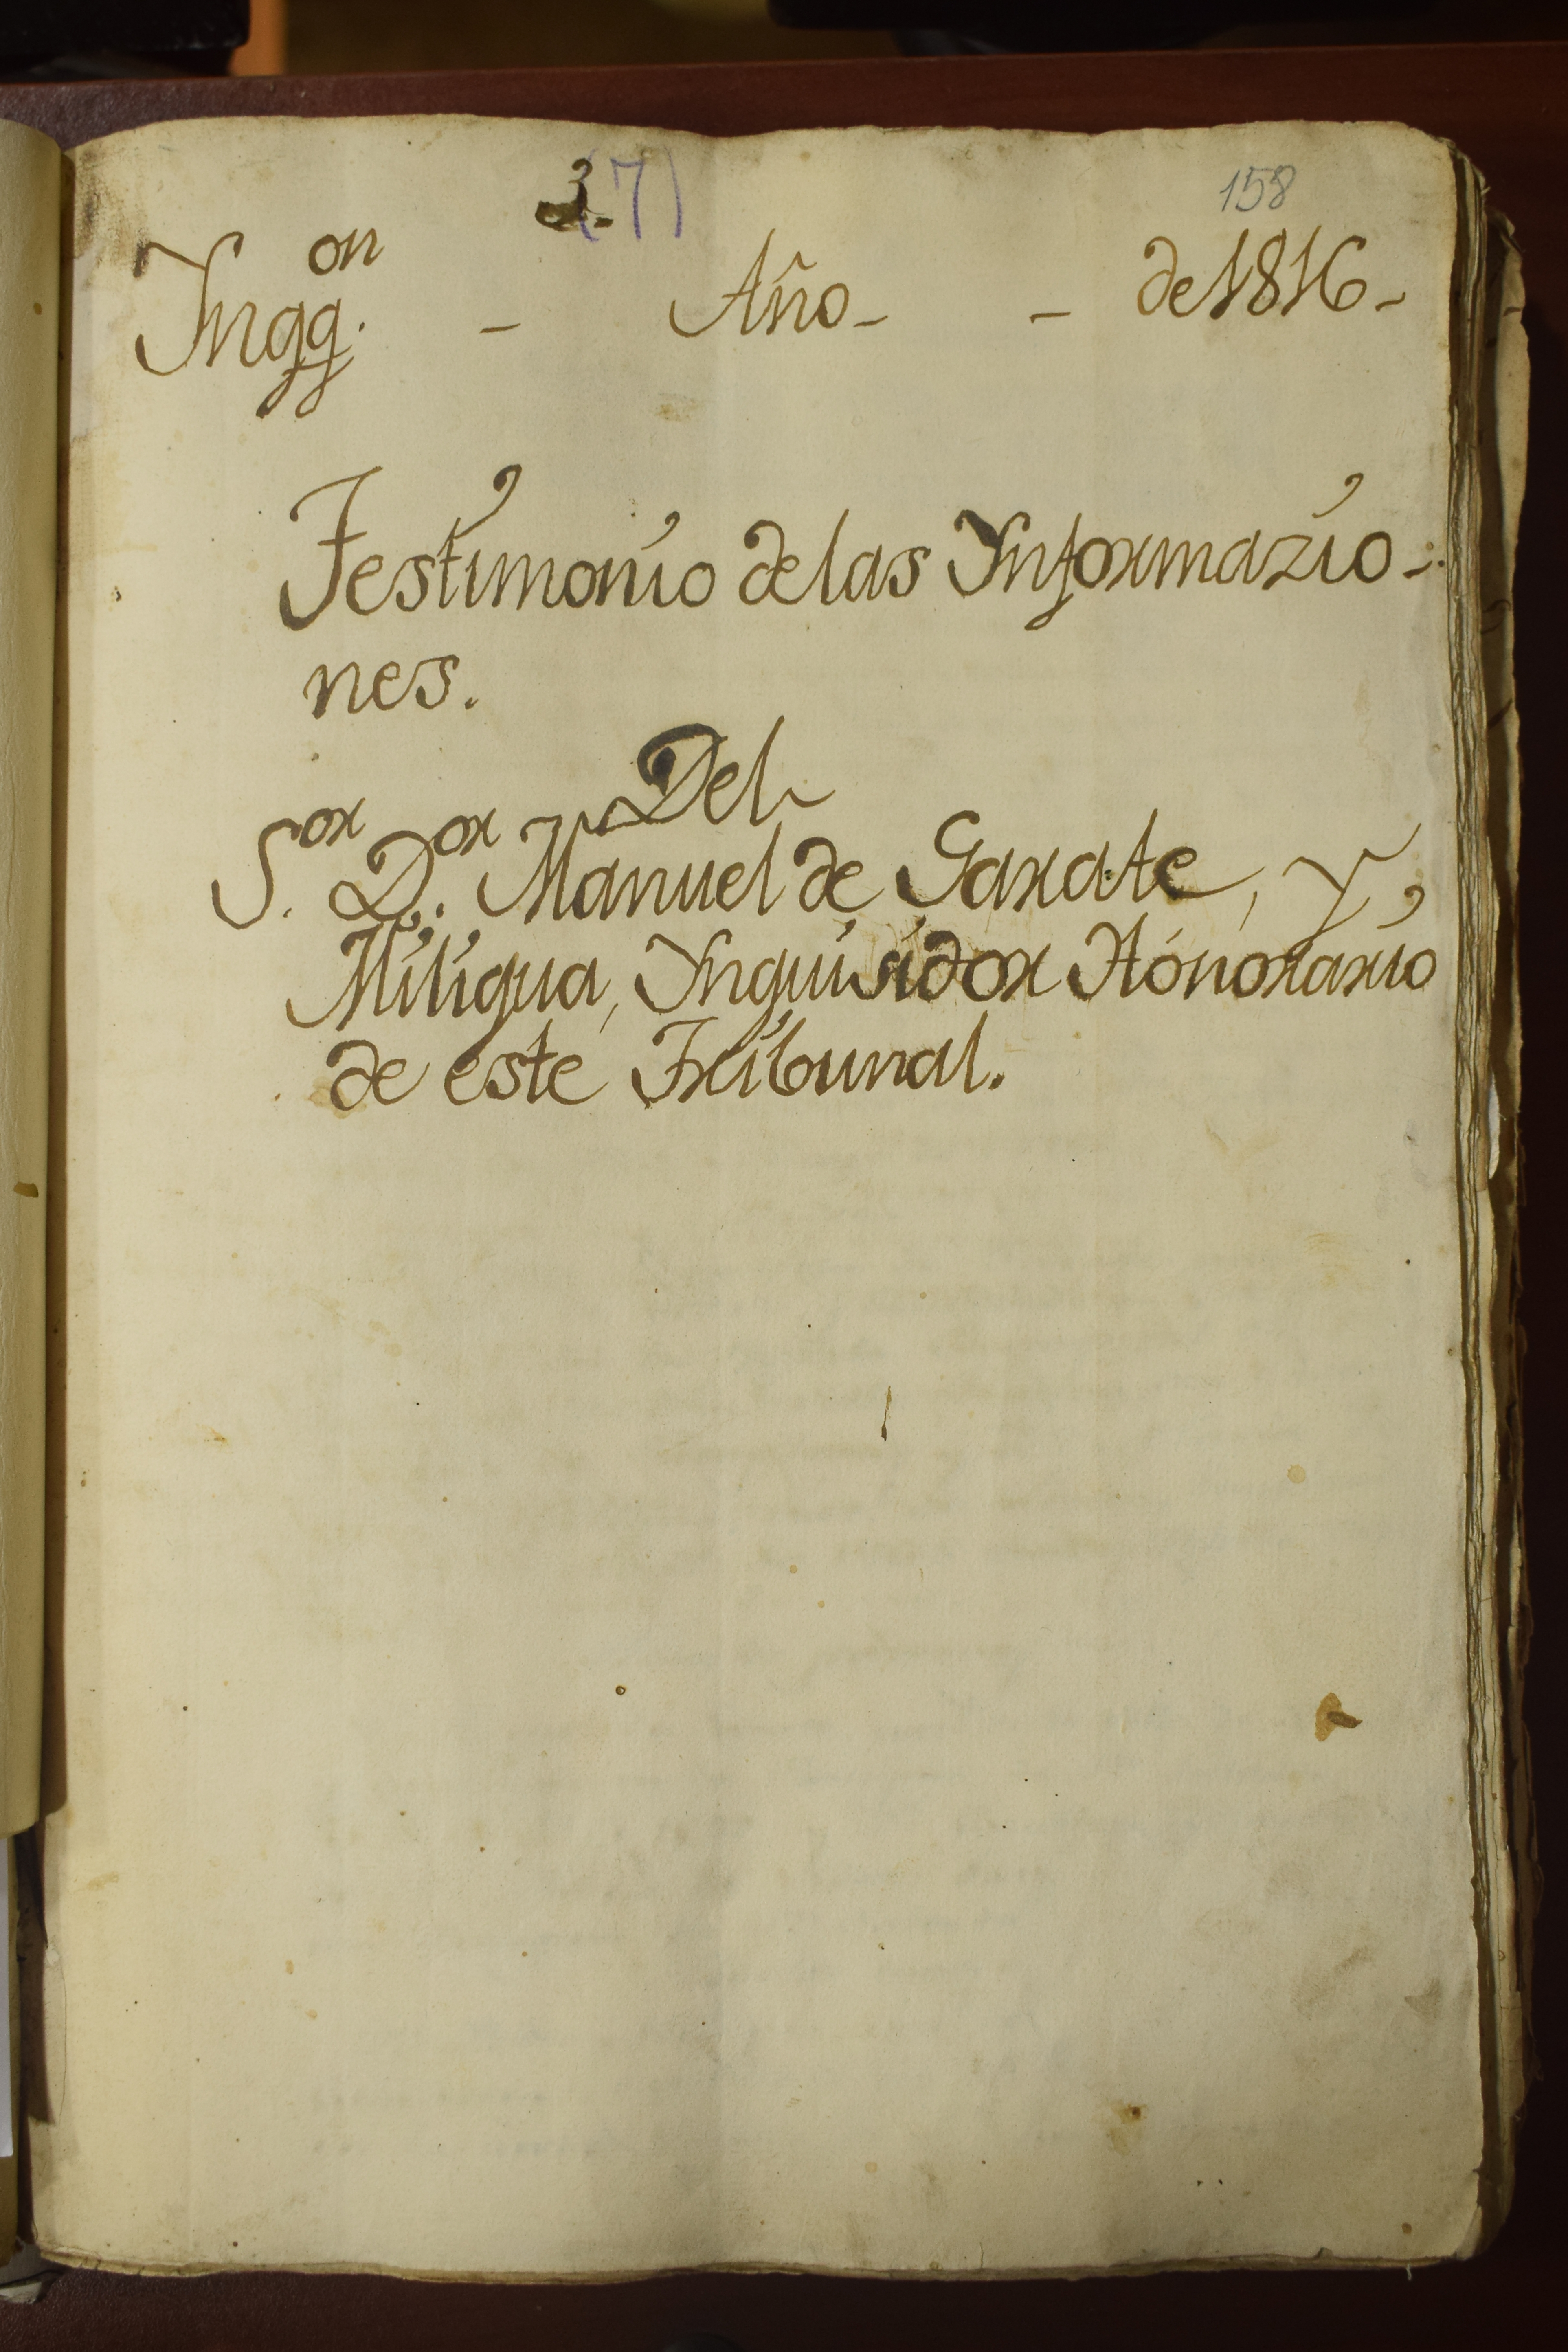 3 (7) 158
Ynqq.on - Año - - de 1816 -
Testimonio de las Ynformazio-
nes.
Del
S.or D.or Manuel de Garate, y,
Miligua, Ynquisidor Honorario
de este Tribunal.